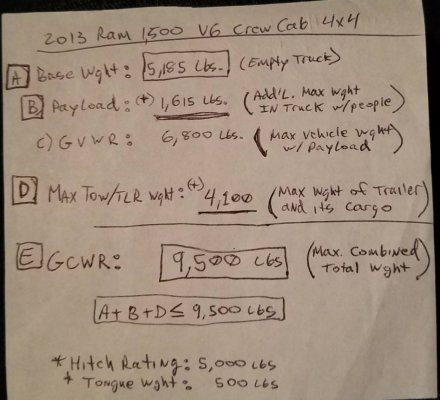 2013 Ram 1500 V6 Crew Cab 4x4
A Base Wght: 5,185 Lbs. (Empty Truck)
B Payload: (+) 1,615 Lbs. (Add'l. Max Wght IN Truck w/people)
C) GVWR: 6,800 Lbs. (Max Vehicle Wght w/Payload)
D Max Tow/TLR Wght: (+) 4,100 (Max Wght of Trailer and its Cargo)
E GCWR: 9,500 Lbs (Max. Combined Total Wght)
A+B+D ≤ 9,500 Lbs
* Hitch Rating: 5,000 Lbs
* Tongue Wght: 500 Lbs